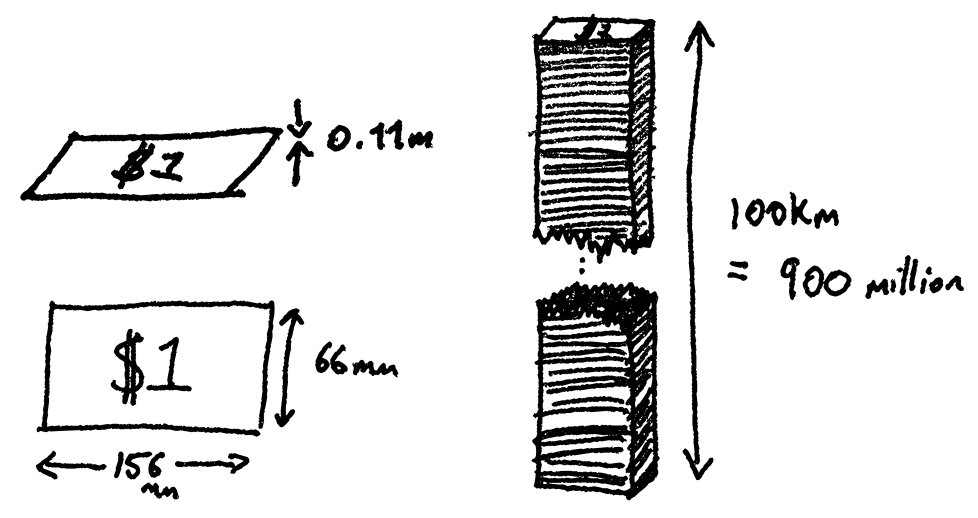 $1
0.11m
$1
66mm
156
mm
$1
100km
= 900 million